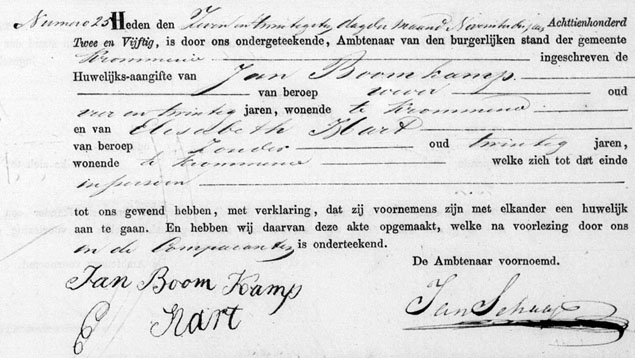 Numero 25 Heden den Zeven en twintigsten dag der maand November des jaars Achttienhonderd
Twee en Vijftig, is door ons ondergeteekende, Ambtenaar van den burgerlijken stand der gemeente
Krommenie ingeschreven de
Huwelijks-aangifte van Jan Boomkamp
van beroep wever oud
vier en twintig jaren, wonende te Krommenie
en van Elisabeth Hart
van beroep Zonder oud twintig jaren,
wonende te Krommenie welke zich tot dat einde
in persoon
tot ons gewend hebben, met verklaring, dat zij voornemens zijn met elkander een huwelijk
aan te gaan. En hebben wij daarvan deze akte opgemaakt, welke na voorlezing door ons
en de Comparanten is onderteekend.
De Ambtenaar voornoemd.
Jan Boom Kamp
E Hart
Jan Schaap